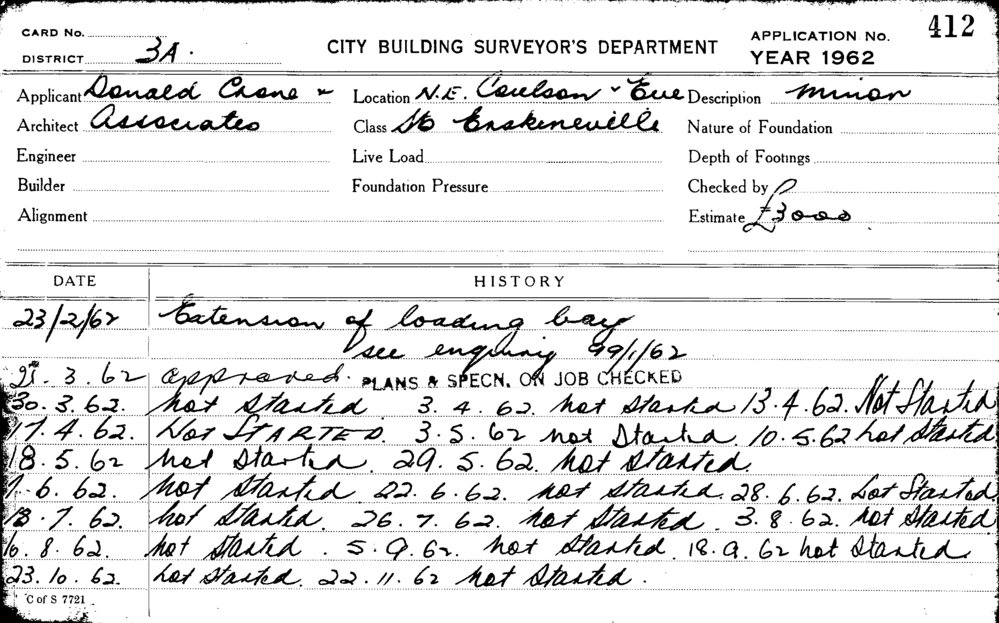 CARD No.
DISTRICT 3A.
CITY BUILDING SURVEYOR'S DEPARTMENT
APPLICATION No. 412
YEAR 1962
Applicant Donald Crone &
Architect Associates
Engineer
Builder
Alignment
Location N.E. Coulson & Eve
Class Sts Erskineville
Live Load
Foundation Pressure
Description minor
Nature of Foundation
Depth of Footings
Checked by
Estimate £3000
DATE HISTORY
23/2/62 Extension of loading bay
see enquiry 99/1/62
21. 3. 62 approved. PLANS & SPECN. ON JOB CHECKED
30. 3. 62. not started 3. 4. 62. not started 13.4.62. Not Started
17. 4. 62. NOT STARTED. 3. 5. 62 not started. 10. 5. 62 not started
18. 5. 62 not started. 29. 5. 62. not started.
7. 6. 62. not started 22. 6. 62. not started. 28. 6. 62. not started.
13. 7. 62. not started. 26. 7. 62. not started. 3. 8. 62. not started
16. 8. 62. not started. 5. 9. 62. not started. 18. 9. 62 not started.
23. 10. 62. not started. 22. 11. 62 not started.
C of S 7721